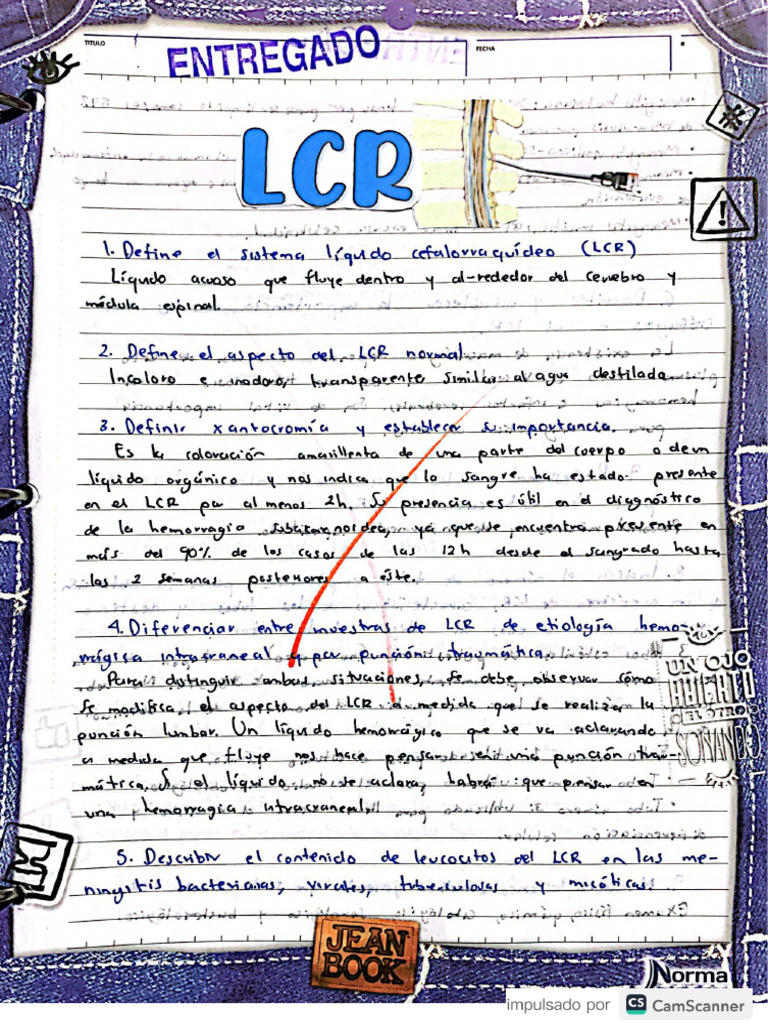 TITULO
FECHA
ENTREGADO
LCR
1. Define el sistema líquido cefalorraquídeo (LCR)
Líquido acuoso que fluye dentro y al-rededor del cerebro y
médula espinal.
2. Define el aspecto del LCR normal
Incoloro e inodoro, transparente similar al agua destilada
3. Definir xantocromía y establecer su importancia.
Es la coloración amarillenta de una parte del cuerpo o de un
líquido orgánico y nos indica que la sangre ha estado presente
en el LCR por al menos 2h. Su presencia es útil en el diagnóstico
de la hemorragia subaracnoidea, ya que se encuentra presente en
más del 90% de los casos de las 12h desde el sangrado hasta
las 2 semanas posteriores a éste.
4. Diferenciar entre muestras de LCR de etiología hemo-
rrágica intracraneal y por punción traumática.
Para distinguir ambas situaciones, se debe observar cómo
se modifica el aspecto del LCR a medida que se realiza la
punción lumbar. Un líquido hemorrágico que se va aclarando
a medida que fluye nos hace pensar en una punción trau-
mática, Si el líquido no se aclara, habrá que pensar en
una hemorragia intracraneal
5. Describir el contenido de leucocitos del LCR en las me-
ningitis bacterianas, virales, tuberculosas y micóticas
UN OJO
ABIERTO
EL OTRO
SOÑANDO
JEAN
BOOK
Norma
impulsado por CS CamScanner